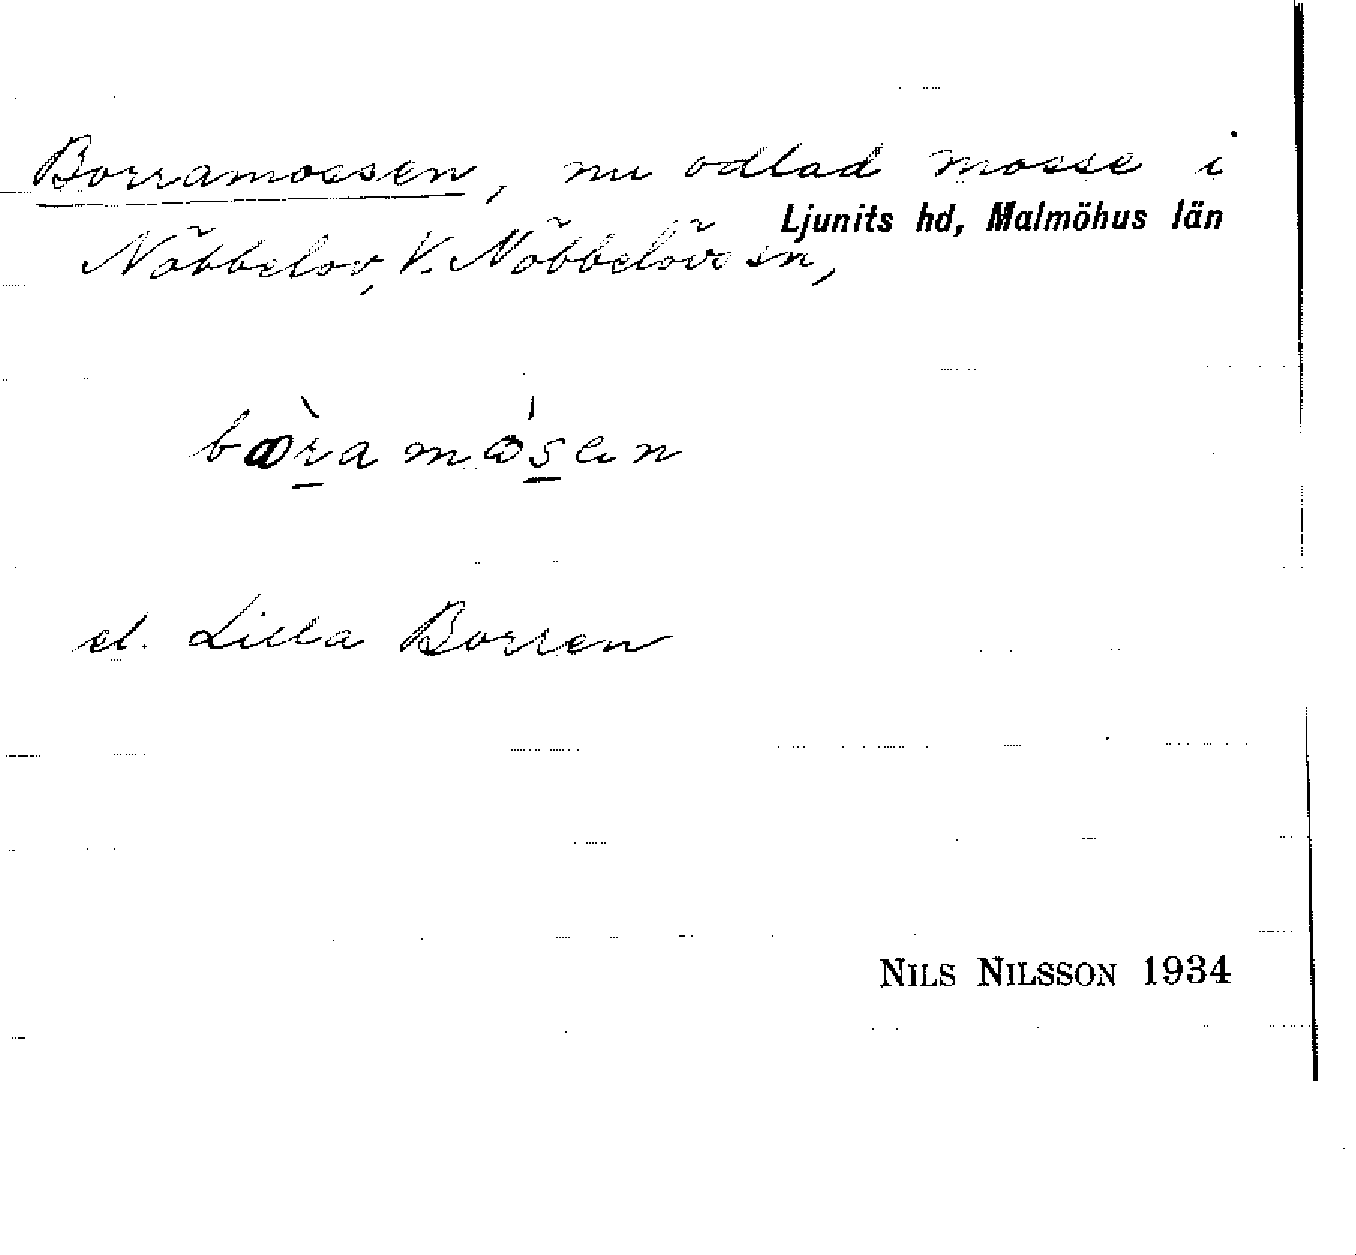 Borramossen, nu odlad mosse i
Ljunits hd, Malmöhus län
Nöbbelöv, V. Nöbbelövs sn,
bꝏ̀ra mꝏ́sen
el. Lilla Borren
NILS NILSSON 1934